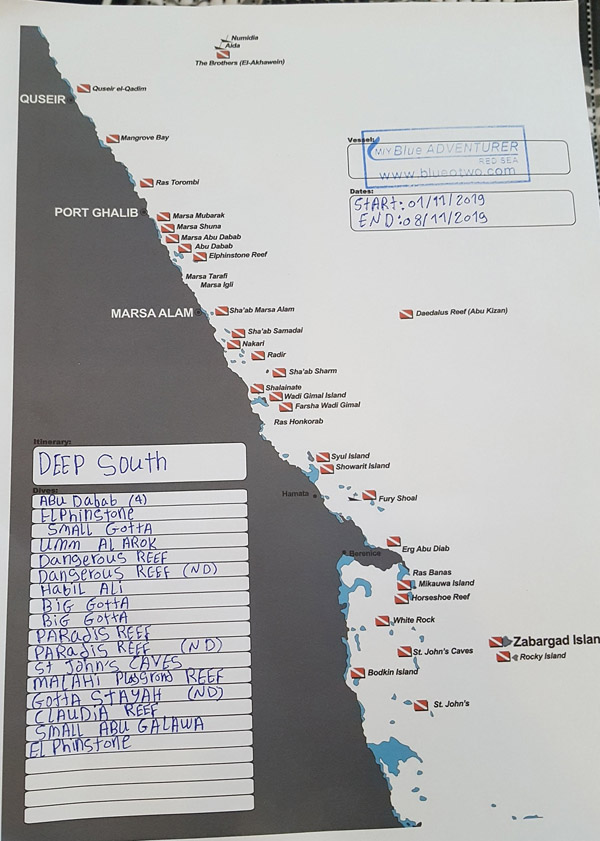 Numidia
Aida
The Brothers (El-Akhawein)
Quseir el-Qadim
QUSEIR
Mangrove Bay
Vessel:
M/Y Blue ADVENTURER
RED SEA
www.blueotwo.com
Ras Torombi
Dates:
START: 01/11/2019
END: 08/11/2019
PORT GHALIB
Marsa Mubarak
Marsa Shuna
Marsa Abu Dabab
Abu Dabab
Elphinstone Reef
Marsa Tarafi
Marsa Igli
MARSA ALAM
Sha'ab Marsa Alam
Daedalus Reef (Abu Kizan)
Sha'ab Samadai
Nakari
Radir
Sha'ab Sharm
Shalainate
Wadi Gimal Island
Farsha Wadi Gimal
Ras Honkorab
Itinerary:
DEEP South
Syul Island
Showarit Island
Hamata
Fury Shoal
Erg Abu Diab
Berenice
Ras Banas
Mikauwa Island
Horseshoe Reef
White Rock
Zabargad Islan
St. John's Caves
Rocky Island
Bodkin Island
St. John's
Dives:
ABU Dabab (4)
ELPhinstone
SMALL GOTTA
Umm AL AROK
Dangerous REEF
Dangerous REEF (ND)
HABIL ALI
BIG GOTTA
BIG GOTTA
PARadis REEF
PARadis REEF (ND)
St John's CAVES
MALAHI Playgrond REEF
GOTTA STAYAH (ND)
CLAUDIA REEF
SMALL ABU GALAWA
EL Phinstone